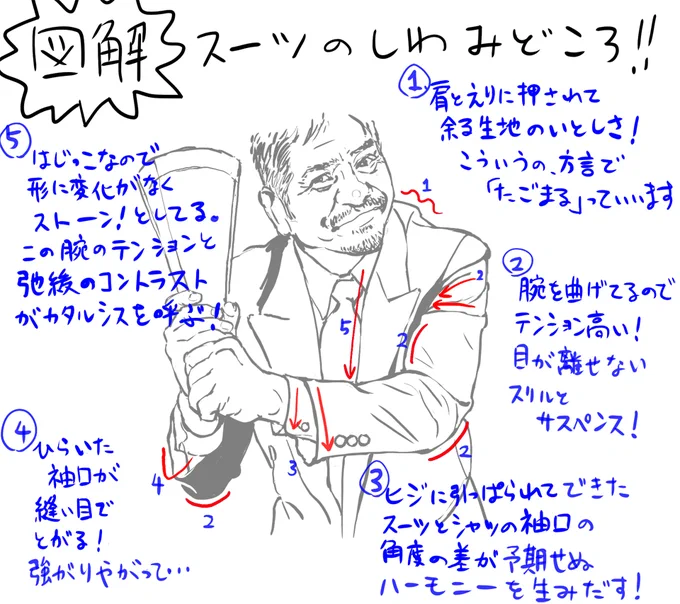 図解 スーツのしわみどころ!!
① 肩とえりに押されて
余る生地のいとしさ!
こういうの、方言で
「たごまる」っていいます
② 腕を曲げてるので
テンション高い!
目が離せない
スリルと
サスペンス!
③ ヒジに引っぱられてできた
スーツとシャツの袖口の
角度の差が予期せぬ
ハーモニーを生みだす!
④ ひらいた
袖口が
縫い目で
とがる!
強がりやがって…
⑤ はじっこなので
形に変化がなく
ストーン!としてる。
この腕のテンションと
弛緩のコントラスト
がカタルシスを呼ぶ!
1
2
2
5
2
3
4
2